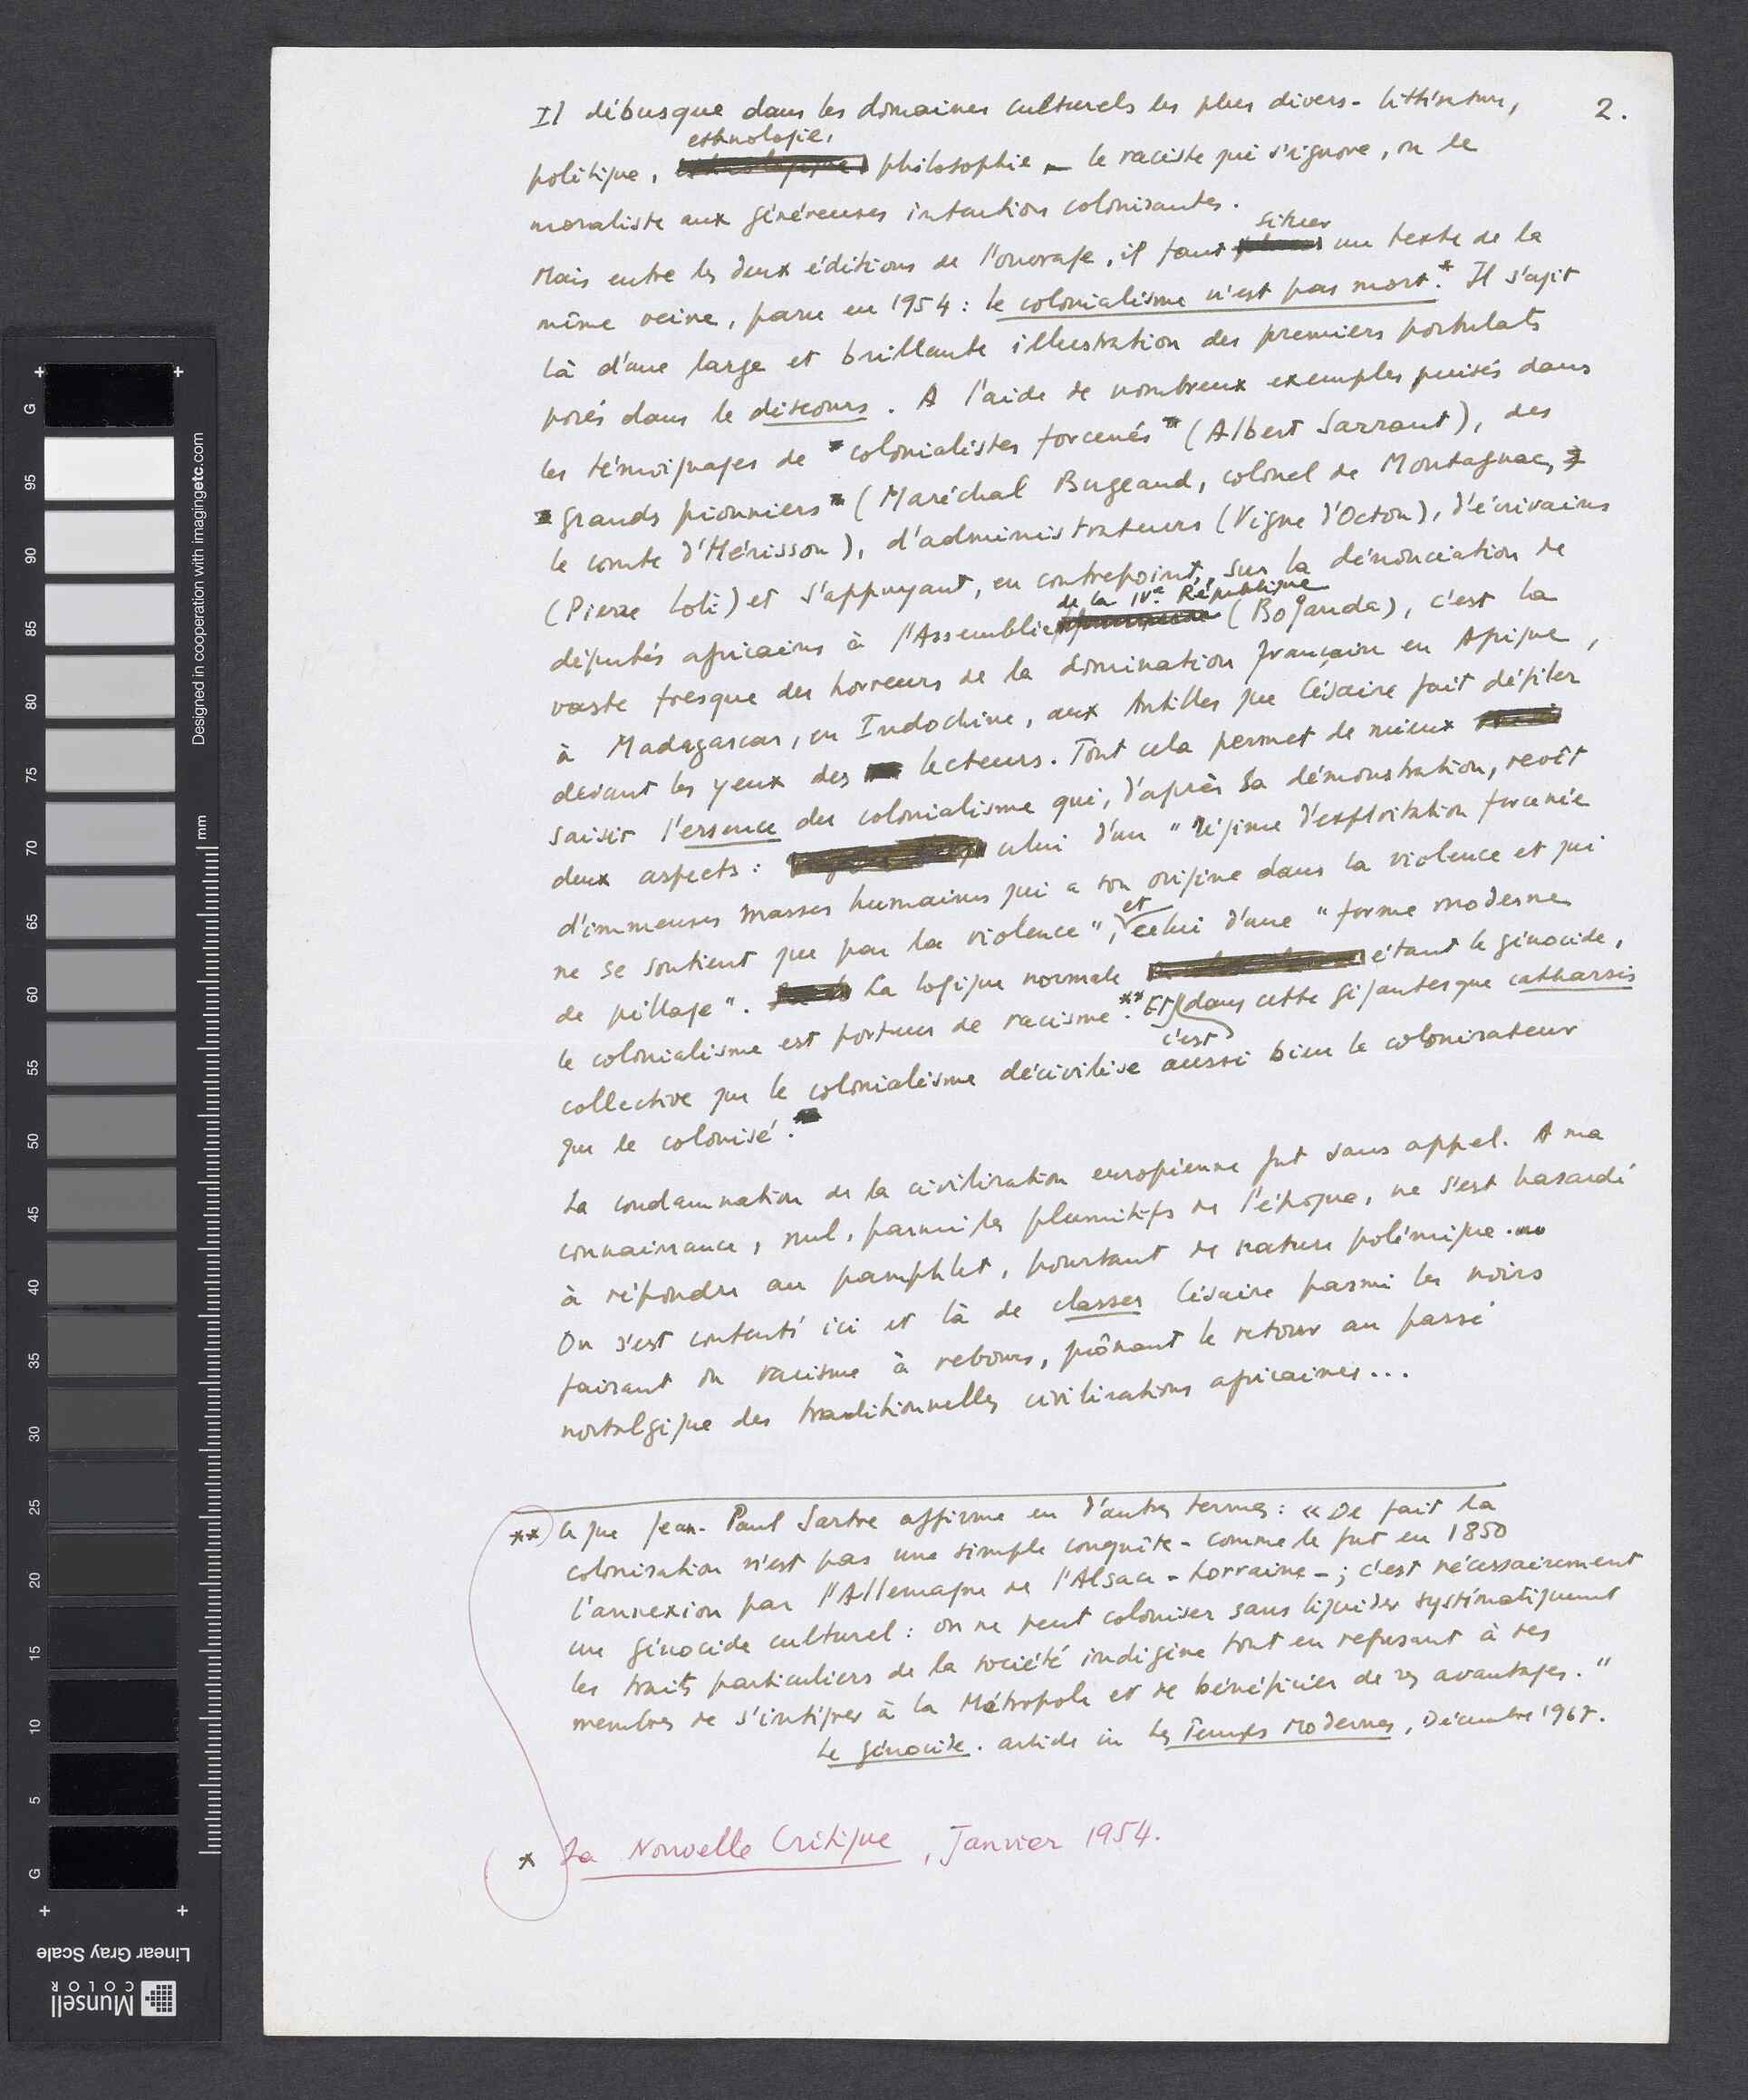 2.
Il débusque dans les domaines culturels les plus divers - littérature,
ethnologie,
politique, philosophie - le raciste qui s'ignore, ou le
moraliste aux généreuses intentions colonisantes.
situer
Mais entre les deux éditions de l'ouvrage, il faut un texte de la
même veine, paru en 1954 : le colonialisme n'est pas mort.* Il s'agit
là d'une large et brillante illustration des premiers postulats
posés dans le discours. A l'aide de nombreux exemples puisés dans
les témoignages de colonialistes forcenés (Albert Sarraut), des
grands pionniers (Maréchal Bugeaud, colonel de Montagnac,
le comte d'Hérisson), d'administrateurs (Vigne d'Octon), d'écrivains
(Pierre Loti) et s'appuyant, en contrepoint, sur la dénonciation de
de la IVe République
députés africains à l'Assemblée (Boganda), c'est la
vaste fresque des horreurs de la domination française en Afrique,
à Madagascar, en Indochine, aux Antilles que Césaire fait défiler
devant les yeux des lecteurs. Tout cela permet de mieux
saisir l'essence du colonialisme qui, d'après sa démonstration, revêt
deux aspects : celui d'un "régime d'exploitation forcenée
d'immenses masses humaines qui a son origine dans la violence et qui
et
ne se soutient que par la violence", celui d'une "forme moderne
de pillage". La logique normale étant le génocide,
le colonialisme est porteur de racisme.** Et dans cette gigantesque catharsis
c'est
collective que le colonialisme décivilise aussi bien le colonisateur
que le colonisé.
La condamnation de la civilisation européenne fut sans appel. A ma
connaissance, nul, parmi les plumitifs de l'époque, ne s'est hasardé
à répondre au pamphlet, pourtant de nature polémique.
On s'est contenté ici et là de classer Césaire parmi les noirs
faisant du racisme à rebours, prônant le retour au passé
nostalgique des traditionnelles civilisations africaines...
** Ce que Jean-Paul Sartre affirme en d'autres termes : « De fait la
colonisation n'est pas une simple conquête - comme le fut en 1850
l'annexion par l'Allemagne de l'Alsace-Lorraine - ; c'est nécessairement
un génocide culturel : on ne peut coloniser sans liquider systématiquement
les traits particuliers de la société indigène tout en refusant à ses
membres de s'intégrer à la Métropole et de bénéficier de ses avantages."
Le génocide. article in Les Temps Modernes, Décembre 1967.
* La Nouvelle Critique, Janvier 1954.
Designed in cooperation with imagingetc.com
mm
G 95 90 85 80 75 70 65 60 55 50 45 40 35 30 25 20 15 10 5 G
Linear Gray Scale
Munsell
COLOR